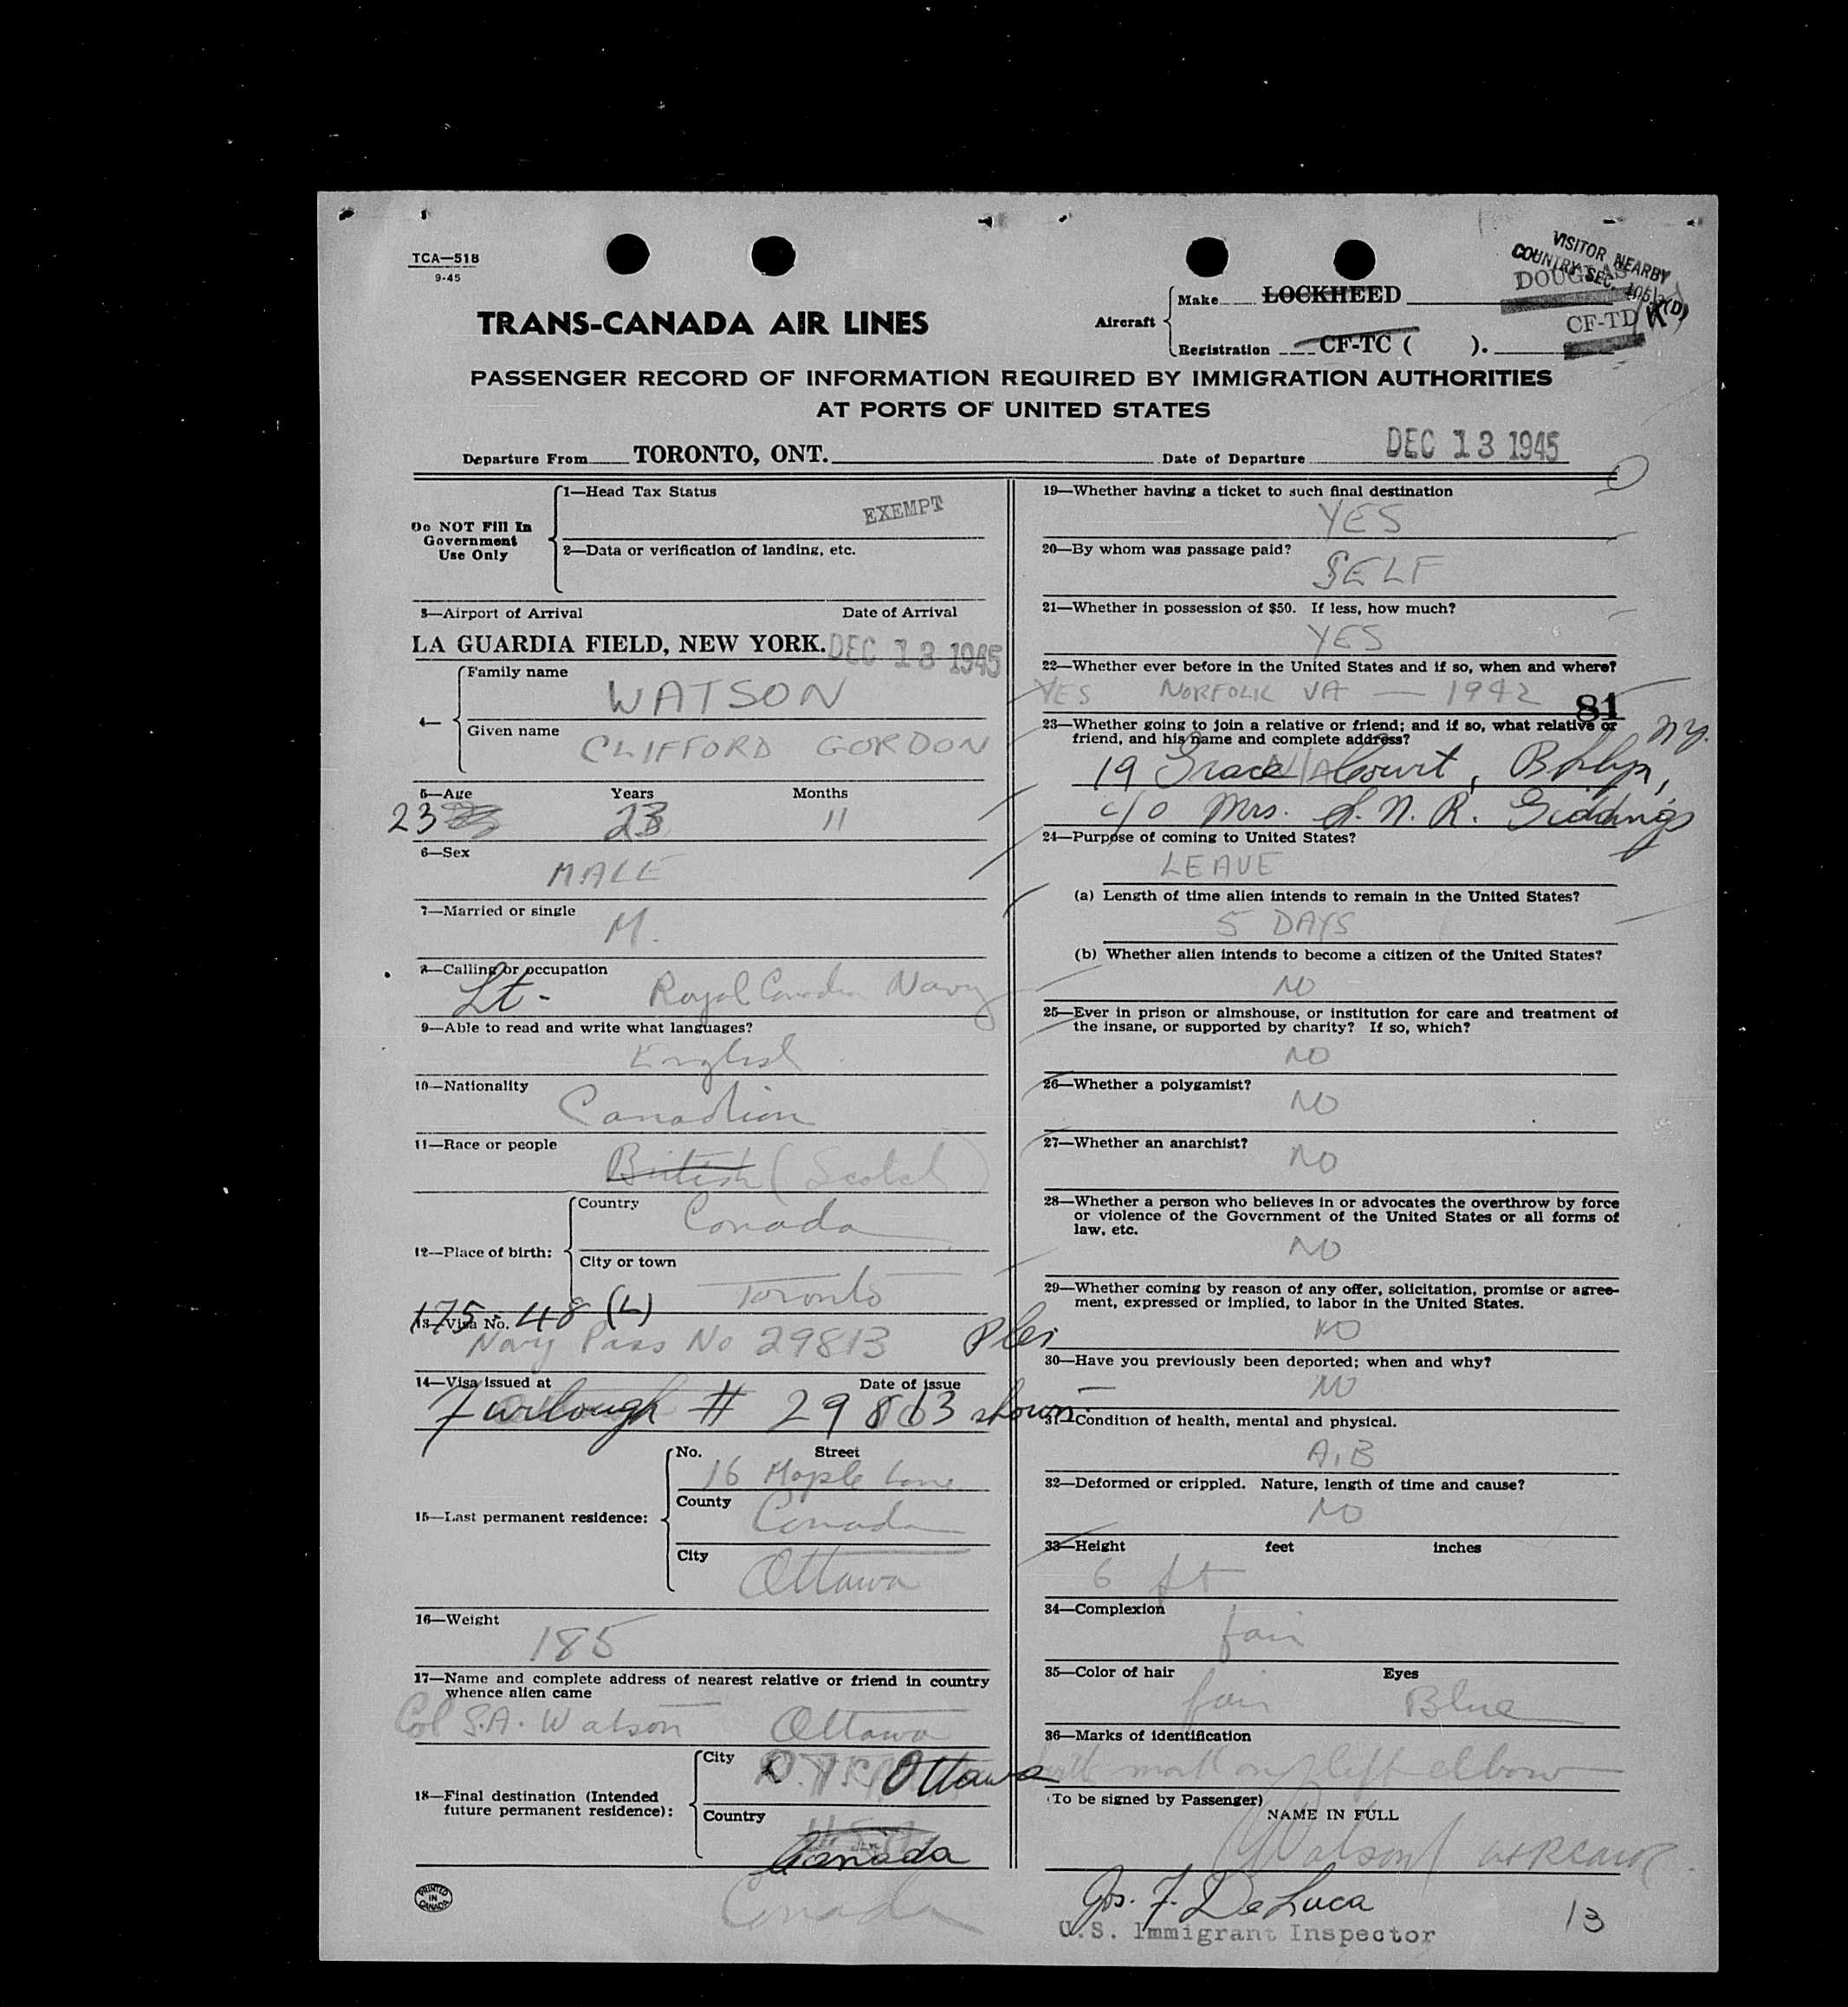 TCA—518
9-45
VISITOR NEARBY
COUNTRY SEC. (D)
DOUGLAS
Aircraft
Make LOCKHEED
CF-TD
Registration CF-TC ( ).
TRANS-CANADA AIR LINES
PASSENGER RECORD OF INFORMATION REQUIRED BY IMMIGRATION AUTHORITIES
AT PORTS OF UNITED STATES
Departure From TORONTO, ONT. Date of Departure DEC 13 1945
Do NOT Fill In
Government
Use Only
1—Head Tax Status
EXEMPT
2—Data or verification of landing, etc.
3—Airport of Arrival Date of Arrival
LA GUARDIA FIELD, NEW YORK. DEC 13 1945
4—
Family name
WATSON
Given name
CLIFFORD GORDON
5—Age Years Months
23 23 11
6—Sex
MALE
7—Married or single
M.
8—Calling or occupation
Lt- Royal Canadian Navy
9—Able to read and write what languages?
English
10—Nationality
Canadian
11—Race or people
British (Scotch)
12—Place of birth:
Country
Canada
City or town
Toronto
175-48 (L)
13—Visa No.
Navy Pass No 29813
14—Visa issued at Date of issue
Furlough # 29813 shown
15—Last permanent residence:
No. Street
16 Maple Lane
County
Canada
City
Ottawa
16—Weight
185
17—Name and complete address of nearest relative or friend in country
whence alien came
Col S.A. Watson Ottawa
18—Final destination (Intended
future permanent residence):
City
Ottawa
Country
Canada
Canada
PRINTED
IN
CANADA
19—Whether having a ticket to such final destination
YES
20—By whom was passage paid?
SELF
21—Whether in possession of $50. If less, how much?
YES
22—Whether ever before in the United States and if so, when and where?
YES NORFOLK VA — 1942
81
23—Whether going to join a relative or friend; and if so, what relative or
friend, and his name and complete address?
N.Y.
N/A
19 Grace Court, Bklyn,
c/o Mrs. R. Giddings
24—Purpose of coming to United States?
LEAVE
(a) Length of time alien intends to remain in the United States?
5 DAYS
(b) Whether alien intends to become a citizen of the United States?
NO
25—Ever in prison or almshouse, or institution for care and treatment of
the insane, or supported by charity? If so, which?
NO
26—Whether a polygamist?
NO
27—Whether an anarchist?
NO
28—Whether a person who believes in or advocates the overthrow by force
or violence of the Government of the United States or all forms of
law, etc.
NO
29—Whether coming by reason of any offer, solicitation, promise or agree-
ment, expressed or implied, to labor in the United States.
NO
30—Have you previously been deported; when and why?
NO
31—Condition of health, mental and physical.
A.B
32—Deformed or crippled. Nature, length of time and cause?
NO
33—Height feet inches
6 ft
34—Complexion
fair
35—Color of hair Eyes
fair Blue
36—Marks of identification
mark on left elbow
(To be signed by Passenger)
NAME IN FULL
Watson Lt RCNVR
Jos. F. DeLuca
U.S. Immigrant Inspector
13